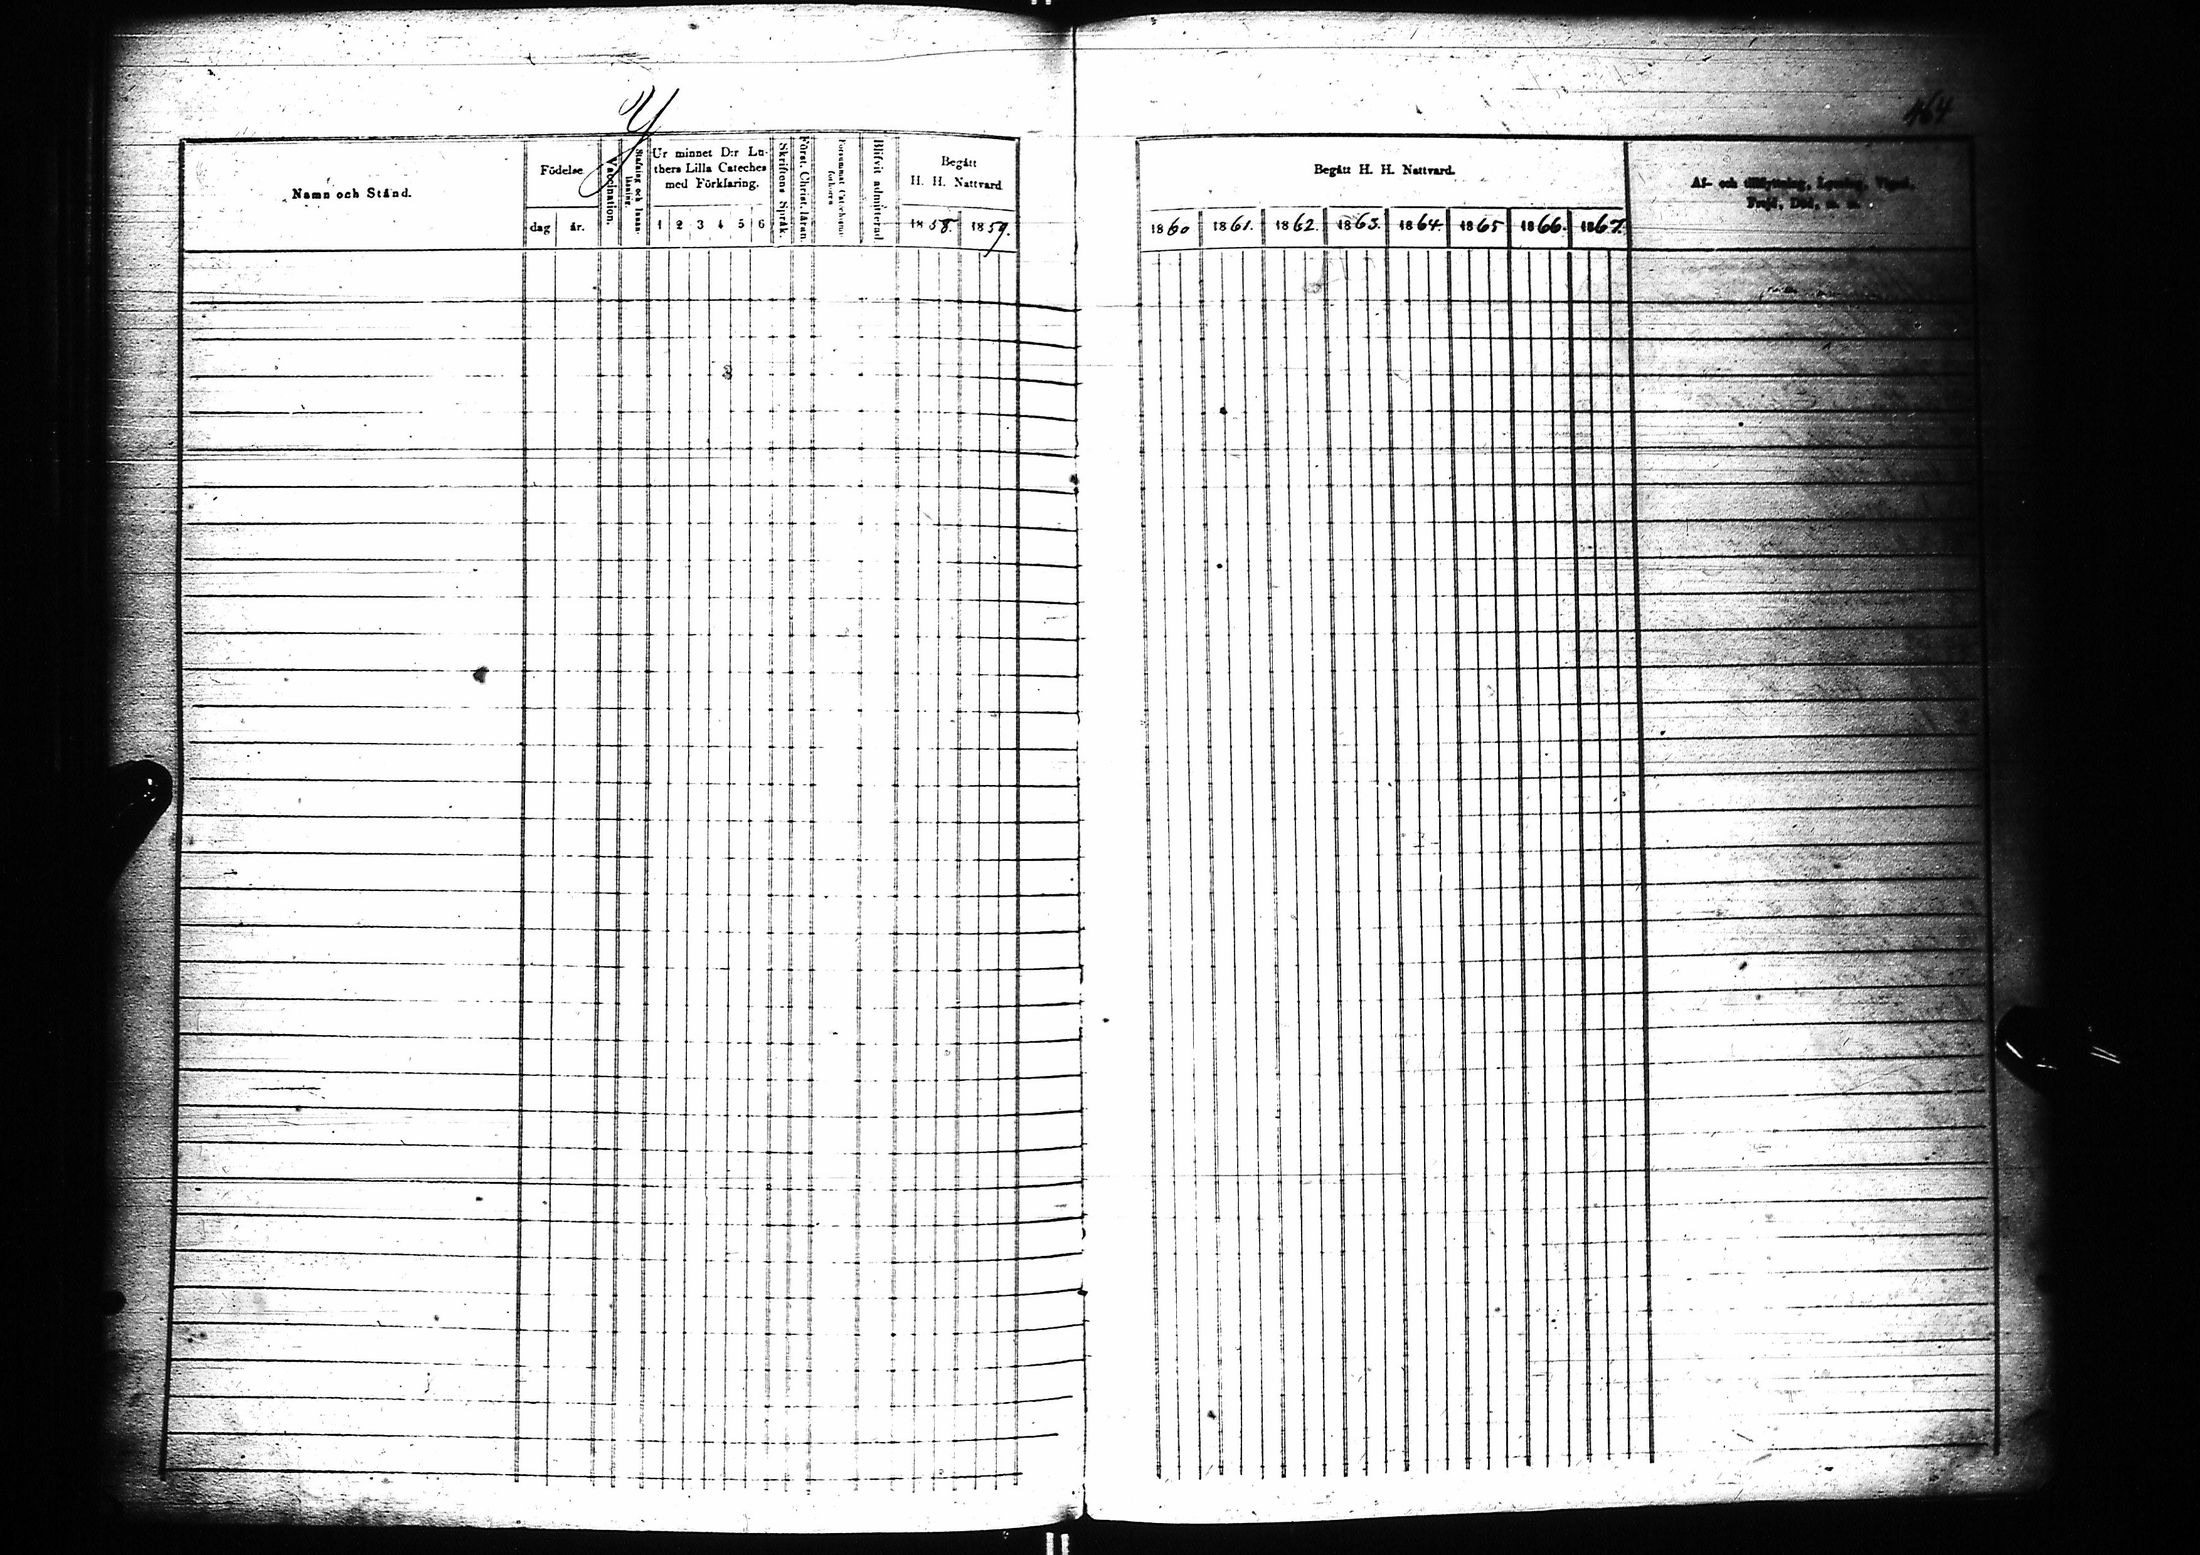 Y
464
Namn och Stånd.
Födelse
dag år.
Vaccination.
Stafning och Innan-
läsning.
Ur minnet D:r Lu-
thers Lilla Cateches
med Förklaring.
1 2 3 4 5 6
Skriftens Språk.
Först. Christ. läran.
Blifvit admitterad
Begått
H. H. Nattvard
1858. 1859.
Begått H. H. Nattvard.
1860 1861. 1862. 1863. 1864. 1865 1866. 1867.
Af- och tillflyttning, Lysning, Vigsel,
Frejd, Död, m. m.